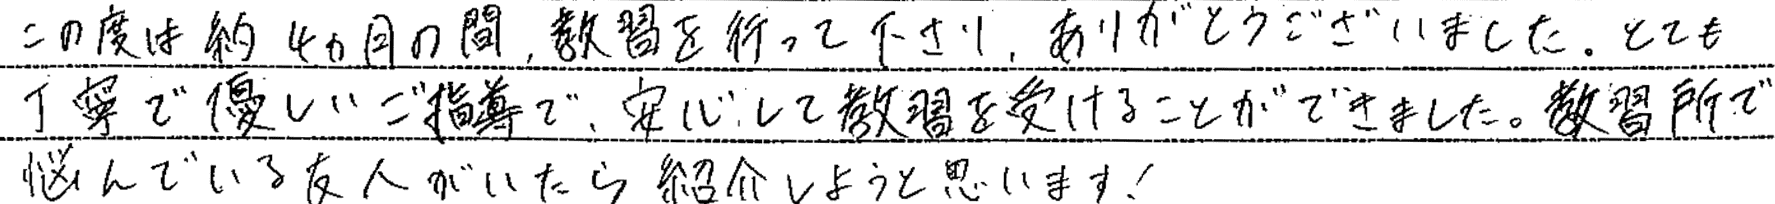 この度は約4ヵ月の間、教習を行って下さり、ありがとうございました。とても
丁寧で優しいご指導で、安心して教習を受けることができました。教習所で
悩んでいる友人がいたら紹介しようと思います!